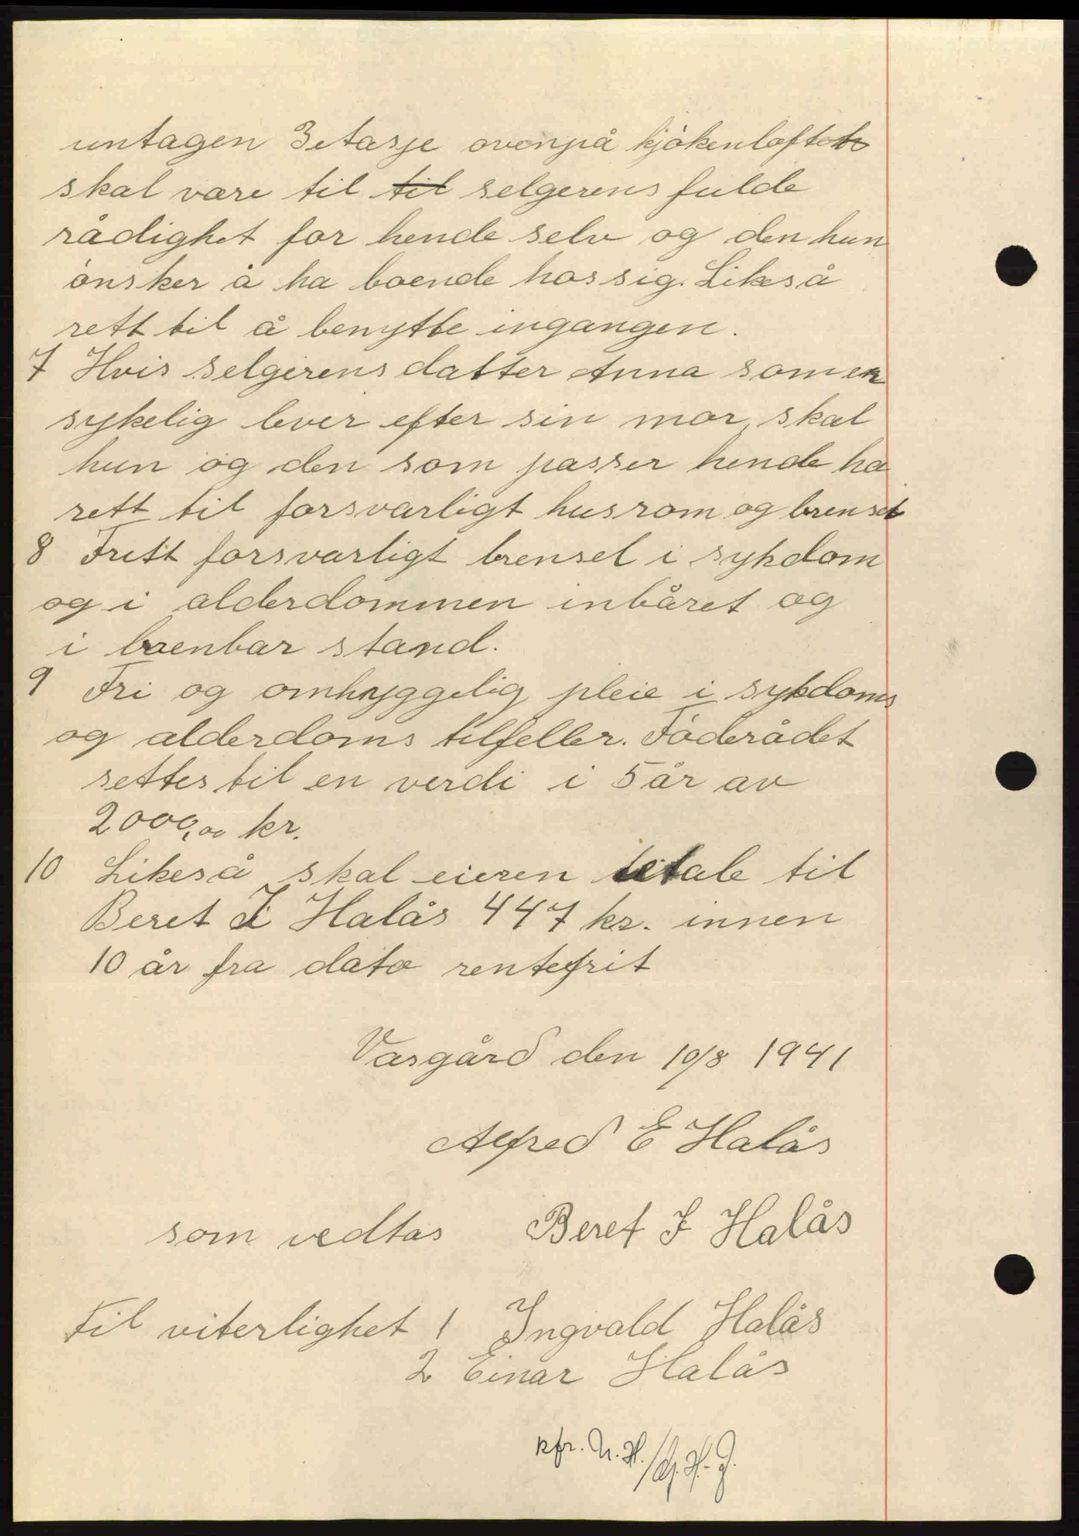 untagen 3 etasje ovenpå kjökenloftet
skal vare til til selgerens fulde
rådighet for hende selv og den hun
önsker å ha boende hos sig. Likeså
rett til å benytte ingangen.
7 Hvis selgerens datter Anna som er
sykelig lever efter sin mor, skal
hun og den som passer hende ha
rett til forsvarligt husrom og brensel
8 Fritt forsvarligt brensel i sykdom
og i alderdommen inbåret og
i brenbar stand.
9 Fri og omhyggelig pleie i sykdoms
og alderdoms tilfeller. Föderådet
settes til en verdi i 5 år av
2000,00 kr.
10 Likeså skal eieren betale til
Beret I Halås 447 kr. innen
10 år fra dato rentefrit
Vasgård den 10/8 1941
Alfred E Halås
som vedtas Beret I Halås
Til viterlighet 1 Ingvald Halås
2 Einar Halås
kfr. N.H./